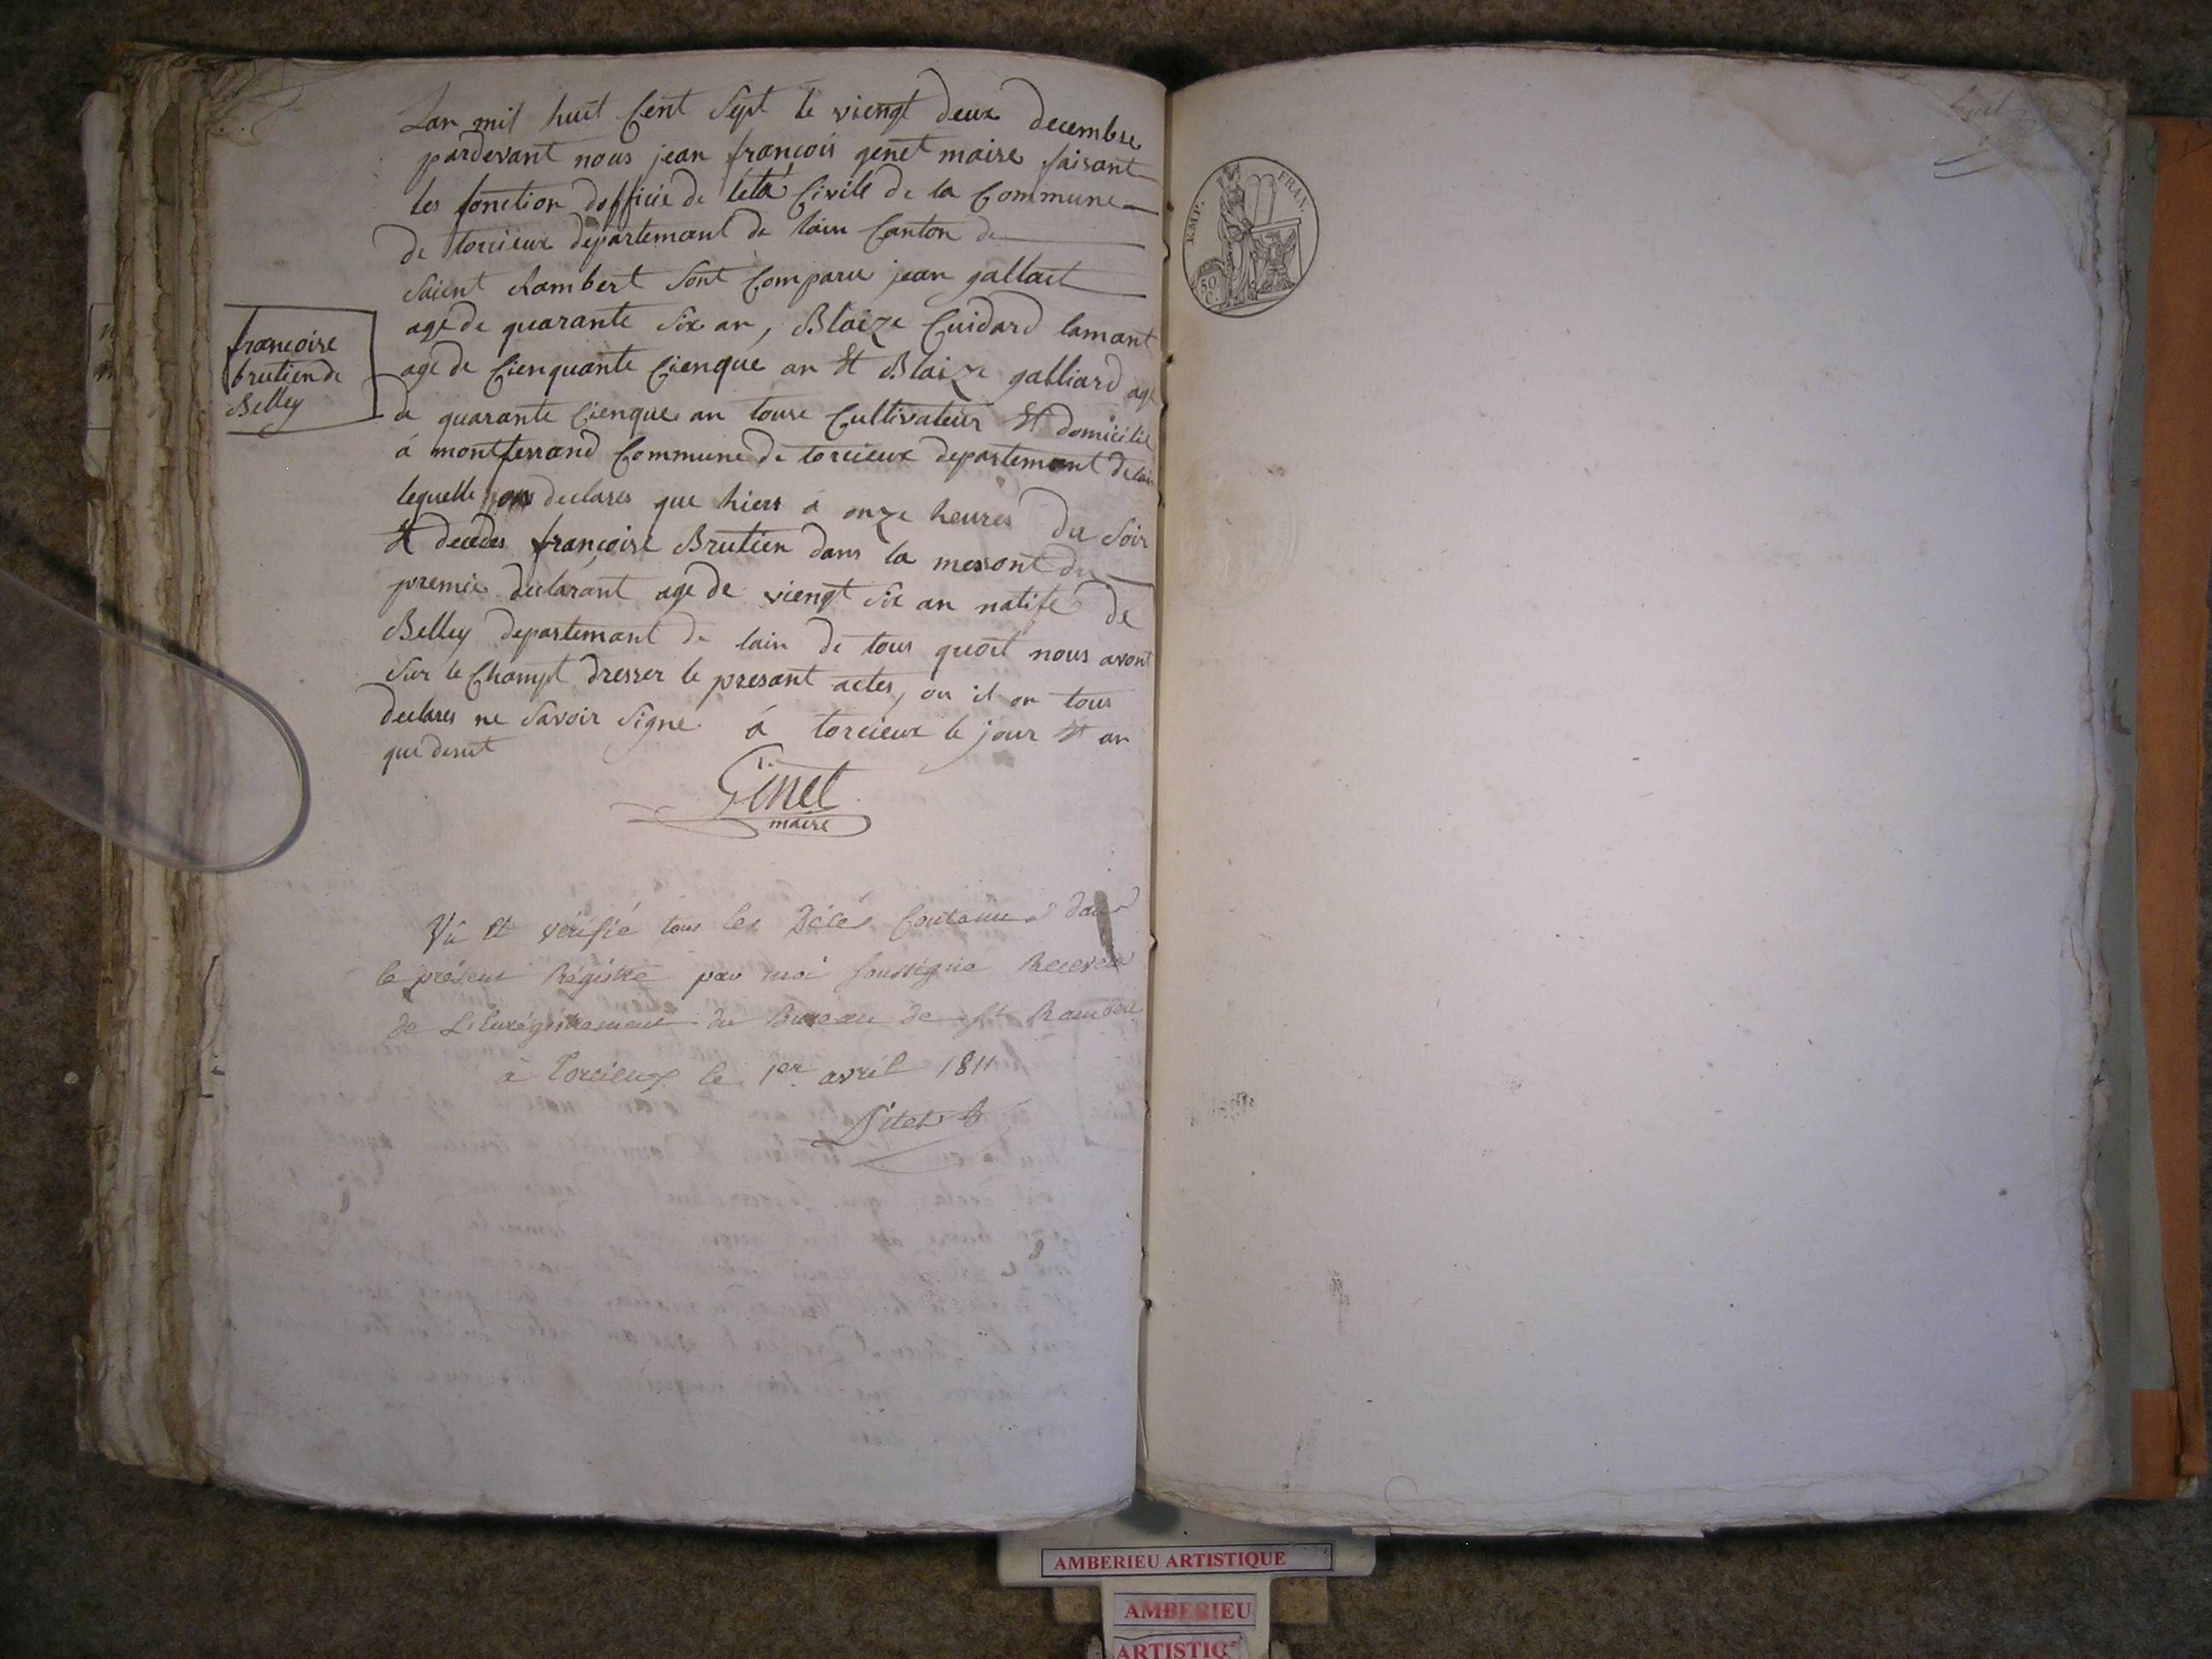 Lan mil huit Cent Sept le viengt deux decembre
pardevant nous jean françois genet maire faisant
les fonction dofficié de letá Civile de la Commune
de torcieux departemant de lain Canton de
Saient Rambert Sont Comparu jean gallaet
age de quarante Six an, Blaize Cuidard lamant
age de Cienquante Cienque an Et Blaize galliard age
de quarante Cienque an touse Cultivateur Et domicilié
françoise
brutien de
Belley
á montferrand Commune de torcieux departemant de lain
lequelle on declares que hiers á onze heures du Soir
Et decedes françoise Brutien dans la mesont du
premié declarant age de viengt six an natife de
Belley departemant de lain de tous quoit nous avont
Sur le Champt dresser le presant actes, ou il on tous
declares ne Savoir Signe á torcieux le jour Et an
que desut
Ginet
maire
Vû Et vérifié tous les Actes Contenus dans
le présent Régistre par moi soussigné Receveur
de L'Enrégistrement du Bureau de St Rambert
à Torcieux le 1er avril 1811
EMP. FRAN.
50
C.
AMBERIEU ARTISTIQUE
AMBERIEU
ARTISTIQ